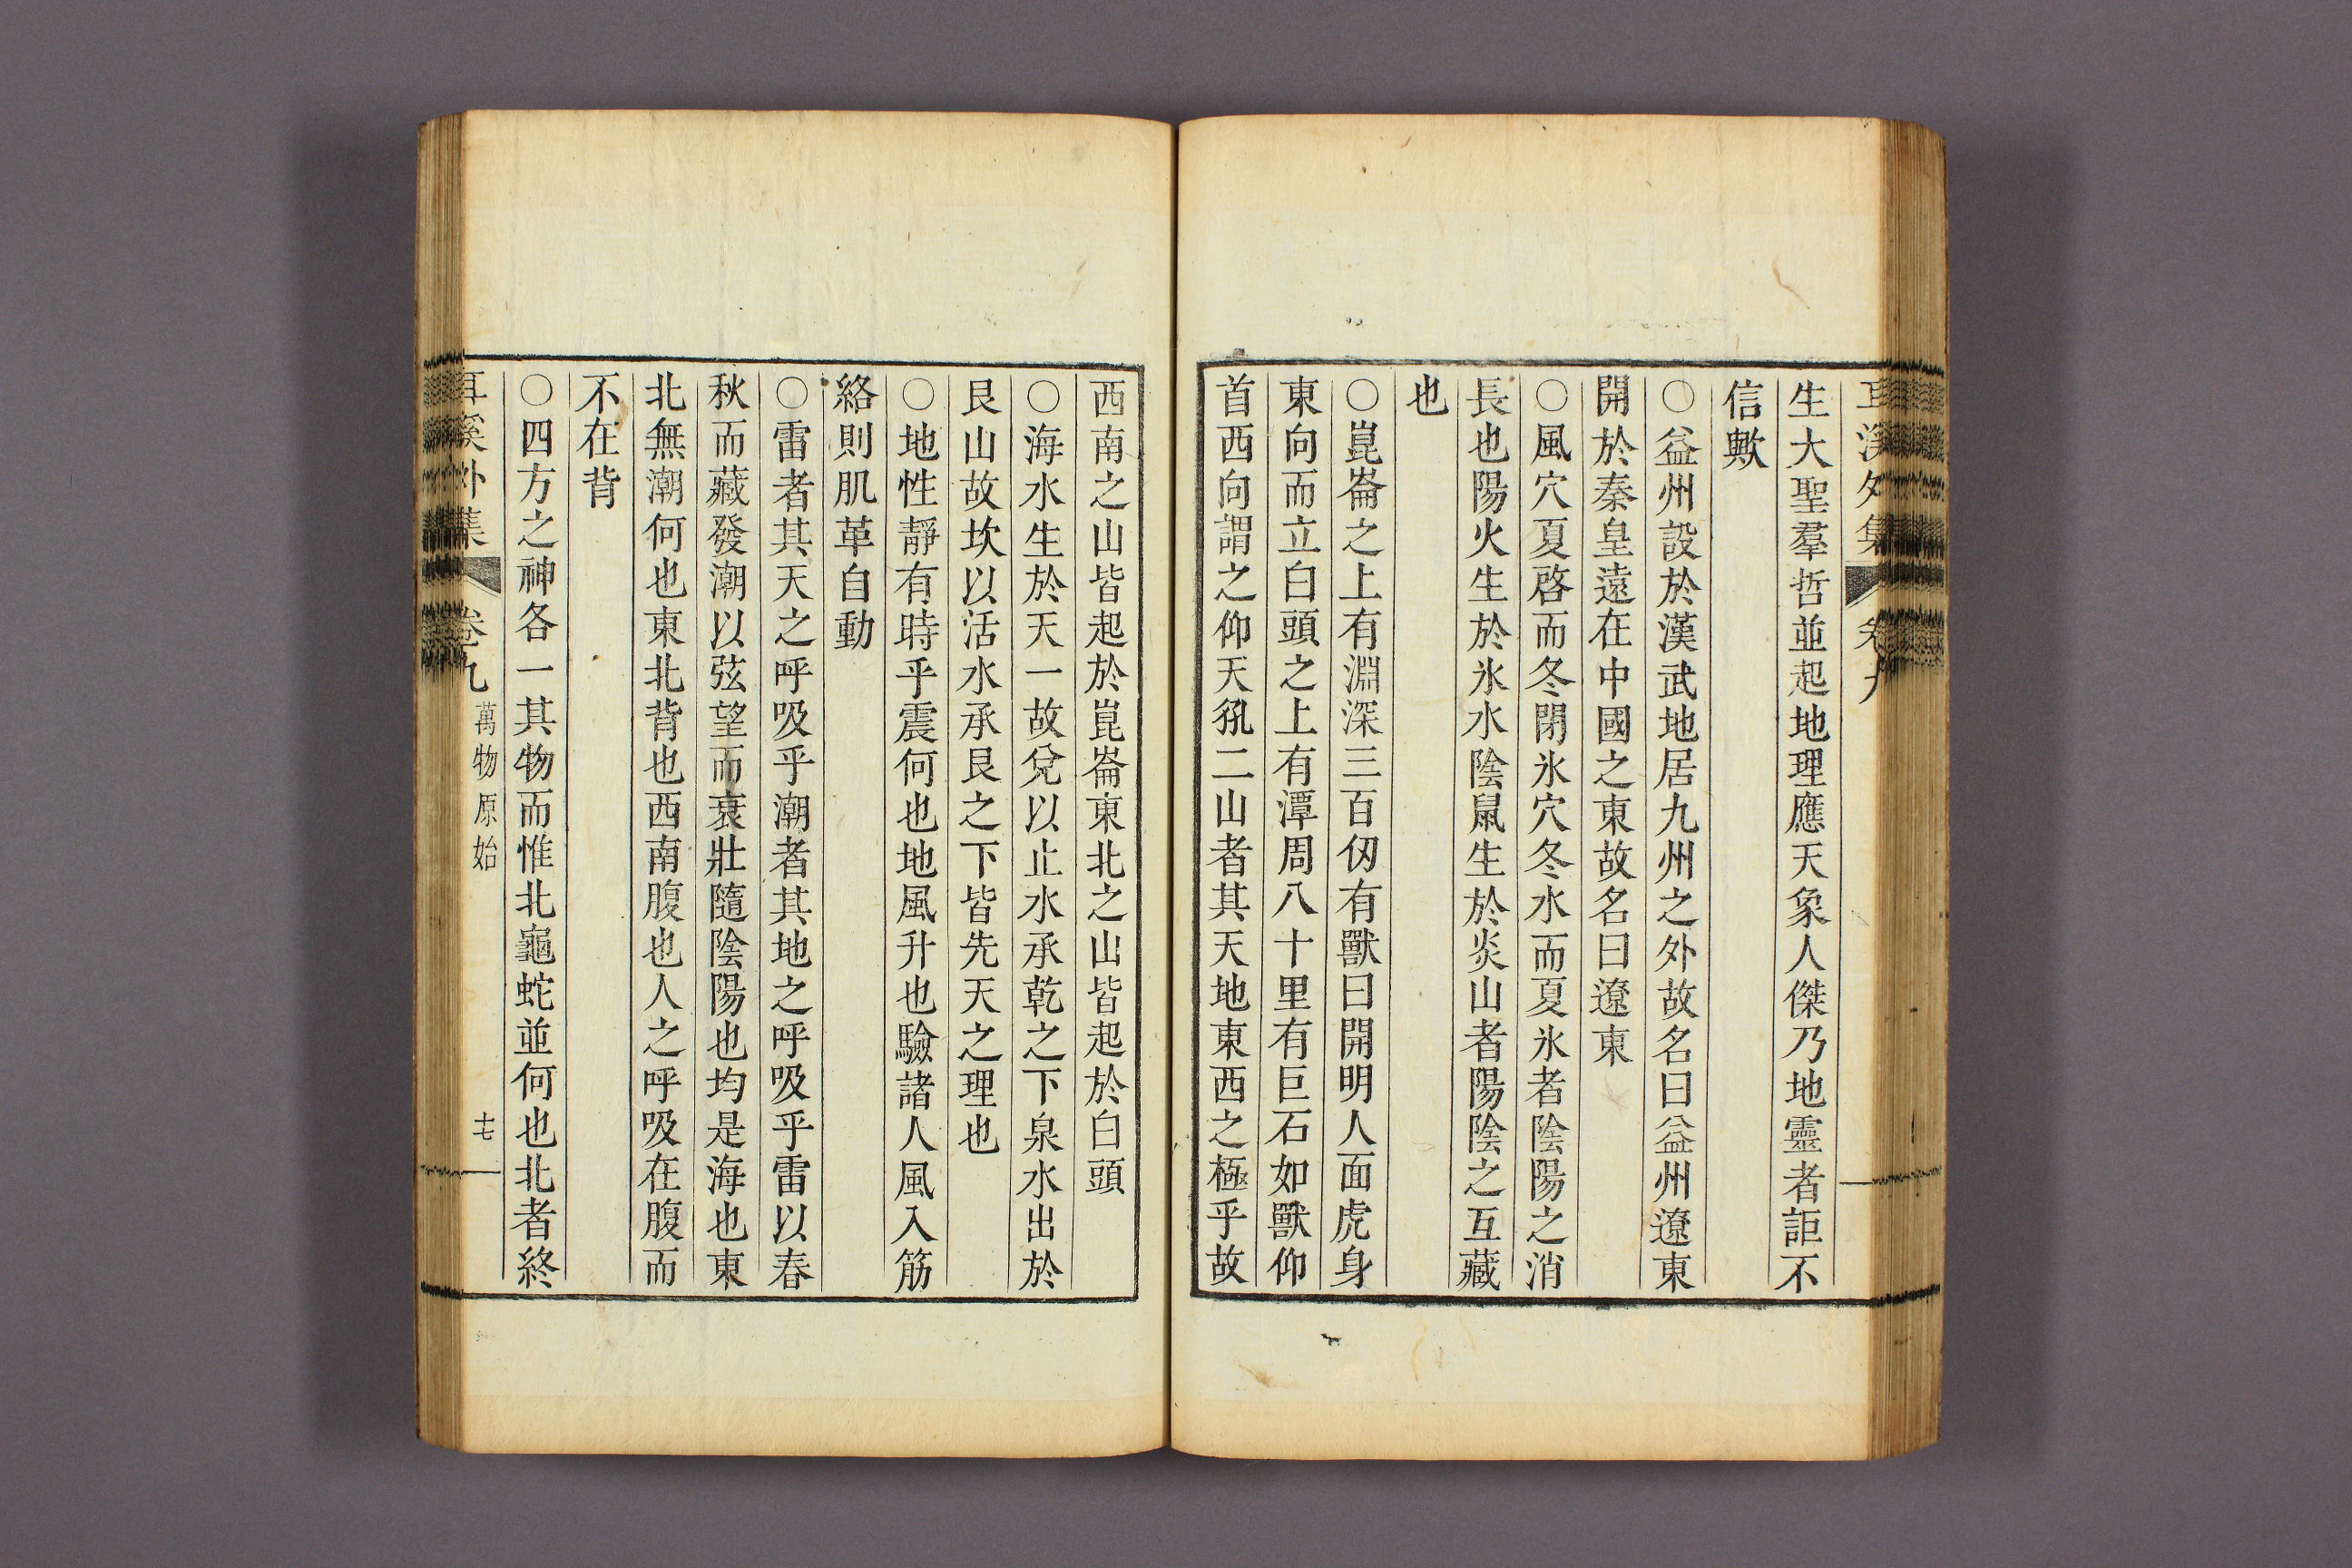 耳溪外集 卷九
生大聖羣哲並起地理應天象人傑乃地靈者詎不
信歟
○益州設於漢武地居九州之外故名曰益州遼東
開於秦皇遠在中國之東故名曰遼東
○風穴夏啓而冬閉氷穴冬水而夏氷者陰陽之消
長也陽火生於氷水陰鼠生於炎山者陽陰之互藏
也
○崑崙之上有淵深三百仞有獸曰開明人面虎身
東向而立白頭之上有潭周八十里有巨石如獸仰
首西向謂之仰天犼二山者其天地東西之極乎故
西南之山皆起於崑崙東北之山皆起於白頭
○海水生於天一故兌以止水承乾之下泉水出於
艮山故坎以活水承艮之下皆先天之理也
○地性靜有時乎震何也地風升也驗諸人風入筋
絡則肌革自動
○雷者其天之呼吸乎潮者其地之呼吸乎雷以春
秋而藏發潮以弦望而衰壯隨陰陽也均是海也東
北無潮何也東北背也西南腹也人之呼吸在腹而
不在背
○四方之神各一其物而惟北龜蛇並何也北者終
耳溪外集 卷九 萬物原始 十七